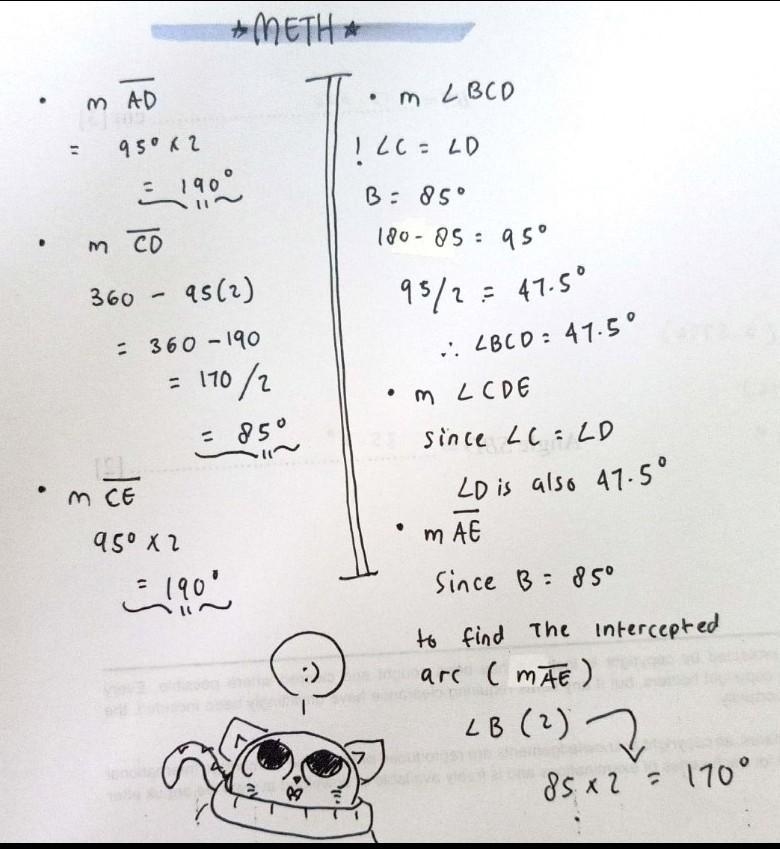 ★ METH ★
• m AD
= 95° x 2
= 190°
• m CD
360 - 95(2)
= 360 - 190
= 170/2
= 85°
• m CE
95° x 2
= 190°
• m ∠BCD
! ∠C = ∠D
B = 85°
180 - 85 = 95°
95/2 = 47.5°
∴ ∠BCD = 47.5°
• m ∠CDE
since ∠C = ∠D
∠D is also 47.5°
• m AE
Since B = 85°
to find The intercepted
arc ( m AE )
∠B (2)
85 x 2 = 170°
:)